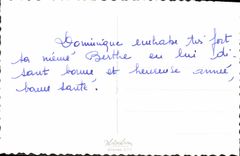 Dominique embrasse très fort
sa mémé Berthe en lui di
sant bonne et heureuse année,
bonne santé.